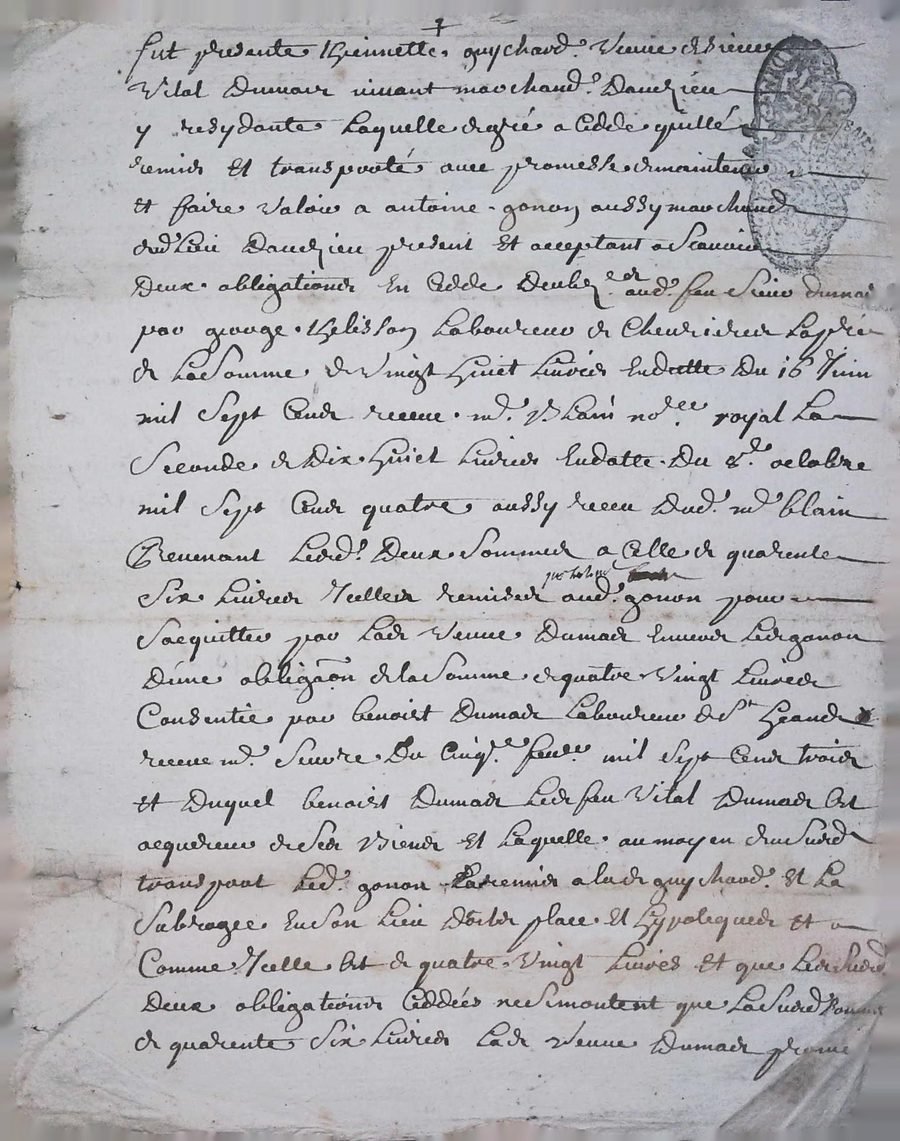 fut presente Thiennette guychard veuve de sieur
Vital Dumas vivant marchand Dauzieu
y resydante laquelle de gré a cedde quitté
remis et transporté avec promesse de maintenir
et faire valoir a antoine gonon aussy marchand
dud lieu Dauzieu present et acceptant a scavoir
Deux obligations en cedde aud feu sieur dumas
par george laboureur de Chevrieres la pre
de la Somme de Vingt huict livres en datte du 16 Juin
mil Sept Cens receue me blain nore royal la
Seconde de Dix huict livres en datte du 8e octobre
mil Sept Cens quatre aussy receu dud me blain
Revenant lesd Deux Sommes a Celle de quarente
Six livres Icelles remises aud gonon pour
Sacquitter par lade veuve Dumas envers led gonon
Dune obligaon de la Somme de quatre Vingt livres
Consentie par benoist Dumas laboureur de St
receue me Du Cinqe feure mil Sept Cens trois
et Duquel benoist Dumas led feu Vital Dumas est
acquereur de Ses biens et laquelle au moyen du susd
transport led gonon la remis a lade guychard et la
Subrogee en Son lieu place et hypoteques et
Comme Icelle est de quatre Vingt livres et que lesd
Deux obligations Ceddées ne Se montent que la Susd Somme
de quarente Six livres lade veuve Dumas prome